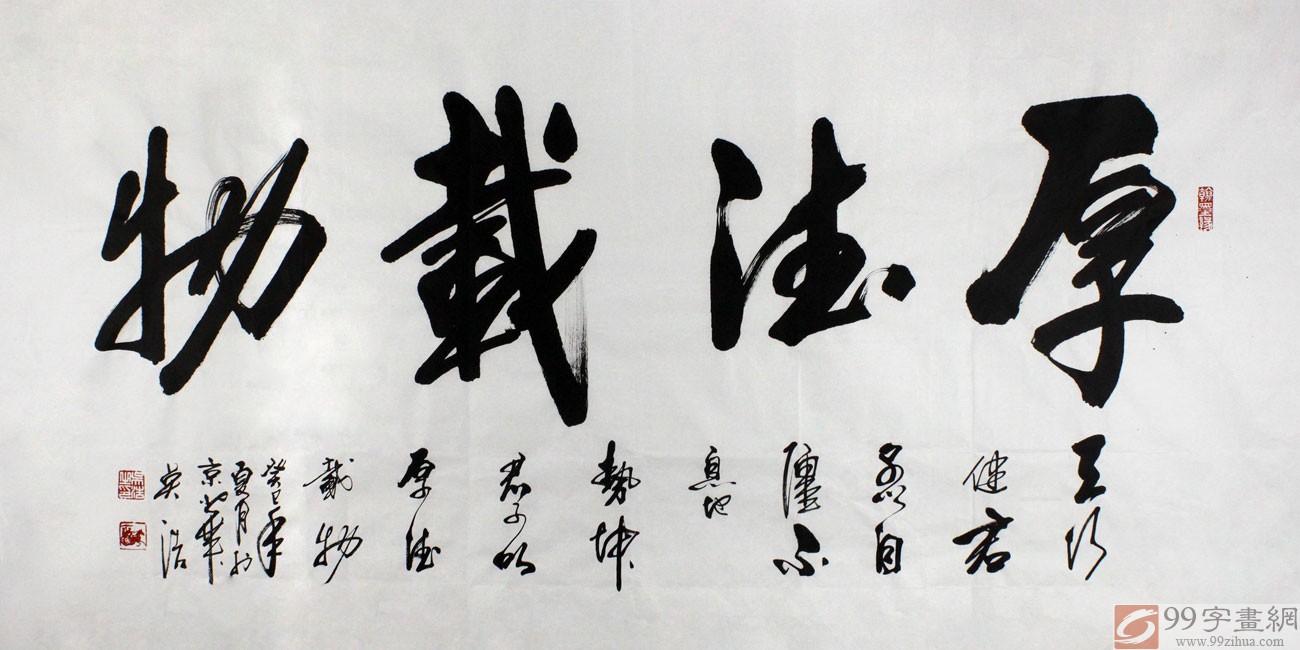 厚德載物
天行
健君
子以自
彊不
息地
勢坤
君子以
厚德
載物
癸巳年
夏月於
京華
浩
99字畫網
www.99zihua.com